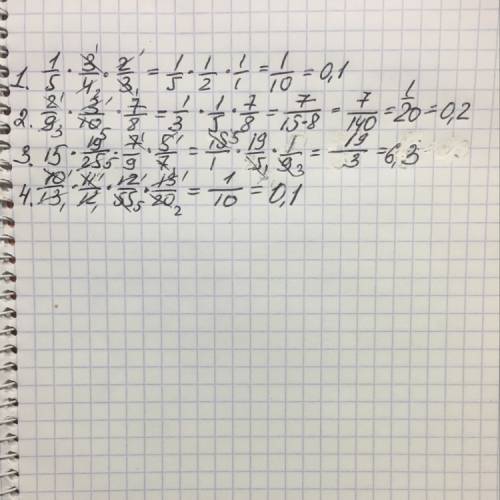 1. 1/5 · 3/4 · 2/3 = 1/5 · 1/2 · 1/1 = 1/10 = 0,1
2. 8/9 · 3/10 · 7/8 = 1/3 · 1/5 · 7/8 = 7/15·8 = 7/140 = 1/20 = 0,2
3. 15 · 19/25 · 7/9 · 5/7 = 15/1 · 19/5 · 1/9 = 19/3 = 6,3
4. 10/13 · 11/12 · 12/55 · 13/20 = 1/10 = 0,1